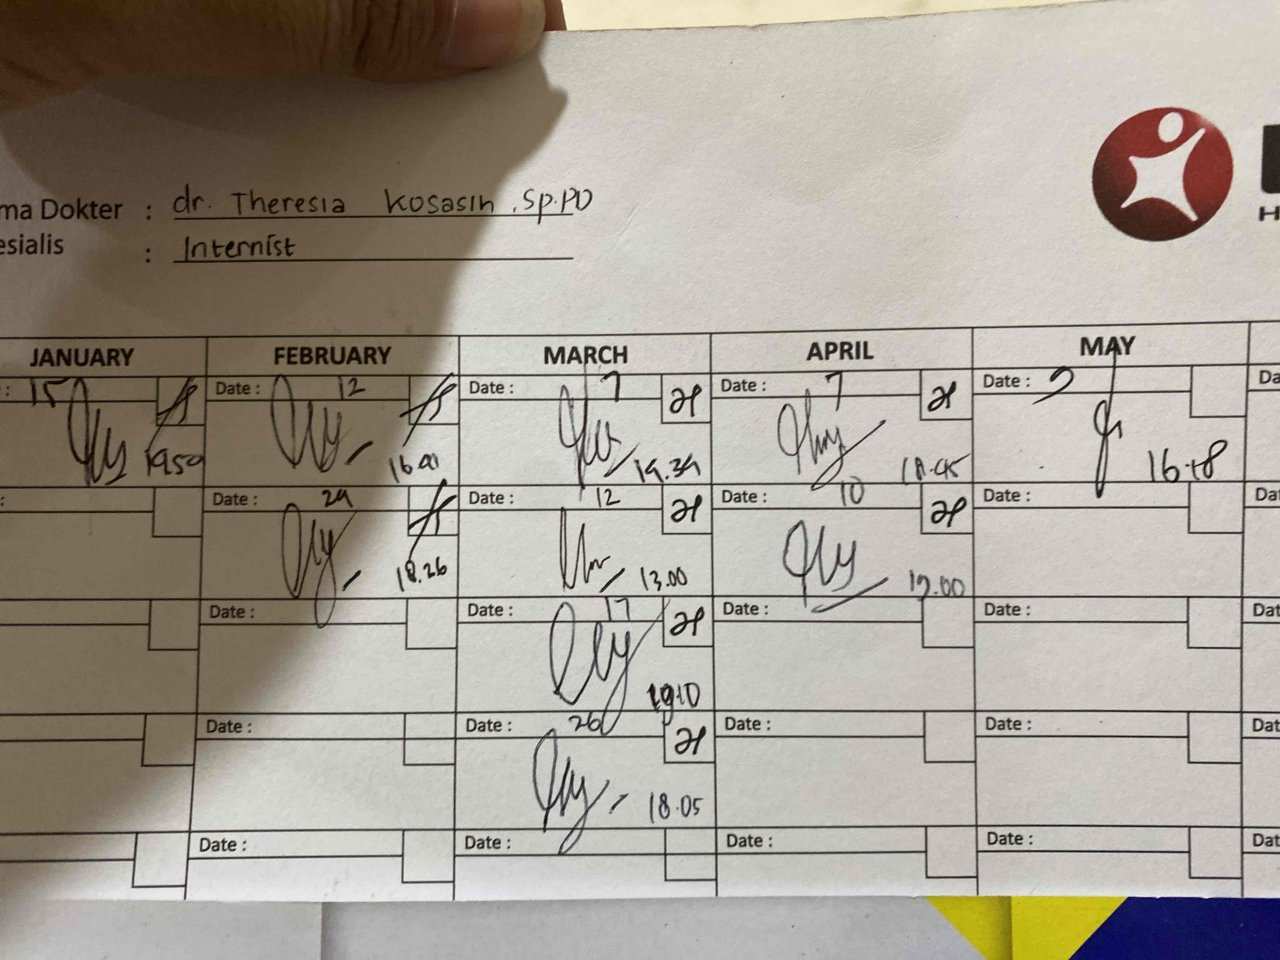 ma Dokter : dr. Theresia Kosasih, Sp.PD
esialis : Internist
H
JANUARY FEBRUARY MARCH APRIL MAY
: 15 Date : 12 Date : 7 Date : 7 Date : 9 Da
19.50 16.01 19.39 18.45 16.18
: Date : 29 Date : 12 Date : 10 Date : Dat
18.26 13.00 17.00
Date : Date : 17 Date : Date : Dat
19.10
Date : Date : 26 Date : Date : Dat
18.05
Date : Date : Date : Date : Dat